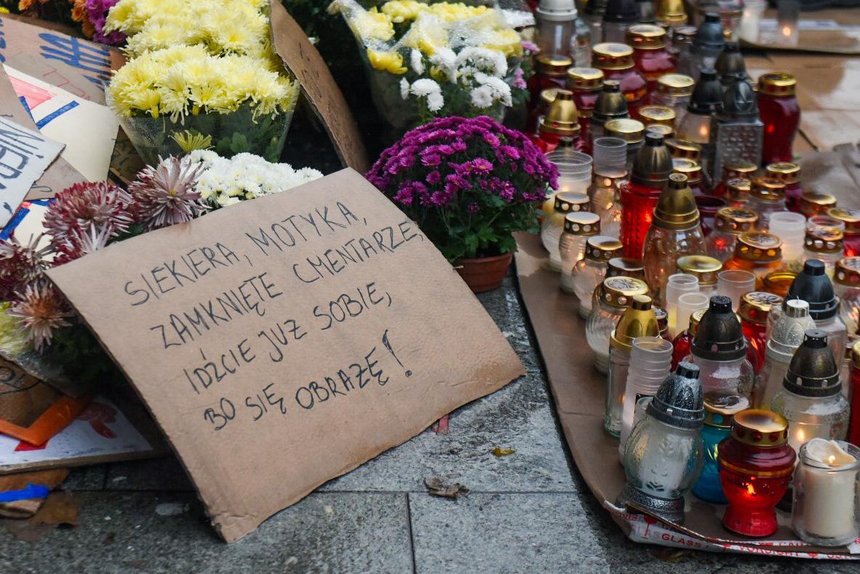 SIEKIERA, MOTYKA,
ZAMKNIĘTE CMENTARZE,
IDŹCIE JUŻ SOBIE,
BO SIĘ OBRAŻĘ!